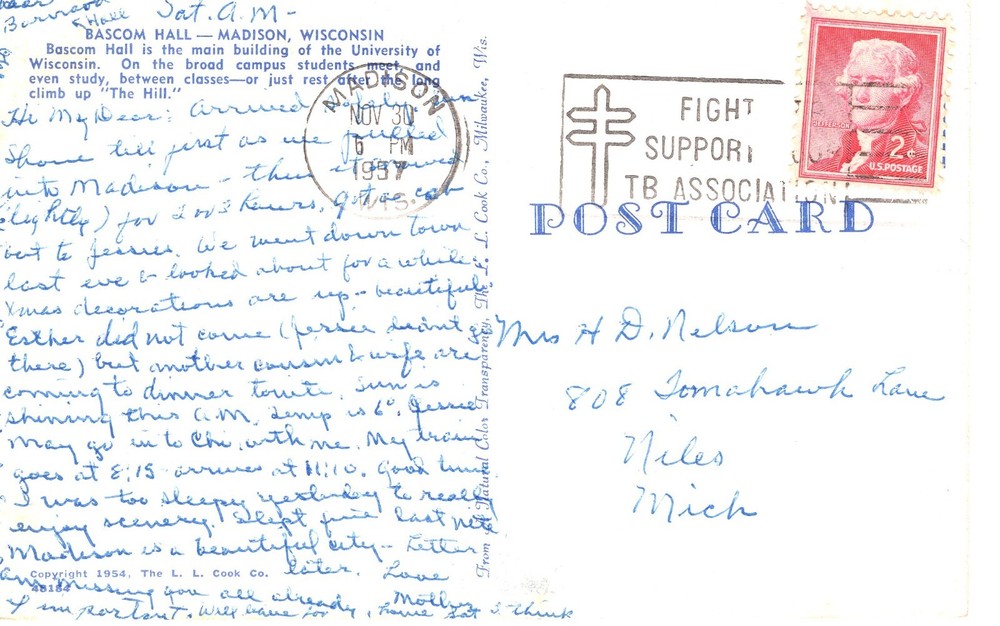 near
Barnard
Hall
Sat. A.M -
BASCOM HALL — MADISON, WISCONSIN
Bascom Hall is the main building of the University of
Wisconsin. On the broad campus students meet, and
even study, between classes—or just rest after the long
climb up "The Hill."
Hi My Dear: Arrived safely. Sun
Shone till just as we pulled
into Madison - then it snowed
(slightly) for 2 or 3 hours, got a cab
out to Jessies. We went down town
last eve & looked about for a while
Xmas decorations are up - beautiful
Esther did not come (Jessie didn't get
there) but another cousin & wife are
coming to dinner tonite. Sun is
shining this A.M. Temp is 6°. Jessie
may go in to Chi. with me. My train
goes at 8:15 arrives at 11:10. Good time
I was too sleepy yesterday to really
enjoy scenery. Slept fine last nite
Madison is a beautiful city - Letter
later. Love
Am missing you all already, Mother
I important. Will leave for home Sat I think
Copyright 1954, The L. L. Cook Co.
48184
From A Natural Color Transparency, The L. L. Cook Co., Milwaukee, Wis.
MADISON
NOV 30
6 PM
1957
WIS.
FIGHT TB
SUPPORT YOUR
TB ASSOCIATION
JEFFERSON
2¢
U.S. POSTAGE
POST CARD
Mrs H D. Nelson
808 Tomahawk Lane
Niles
Mich